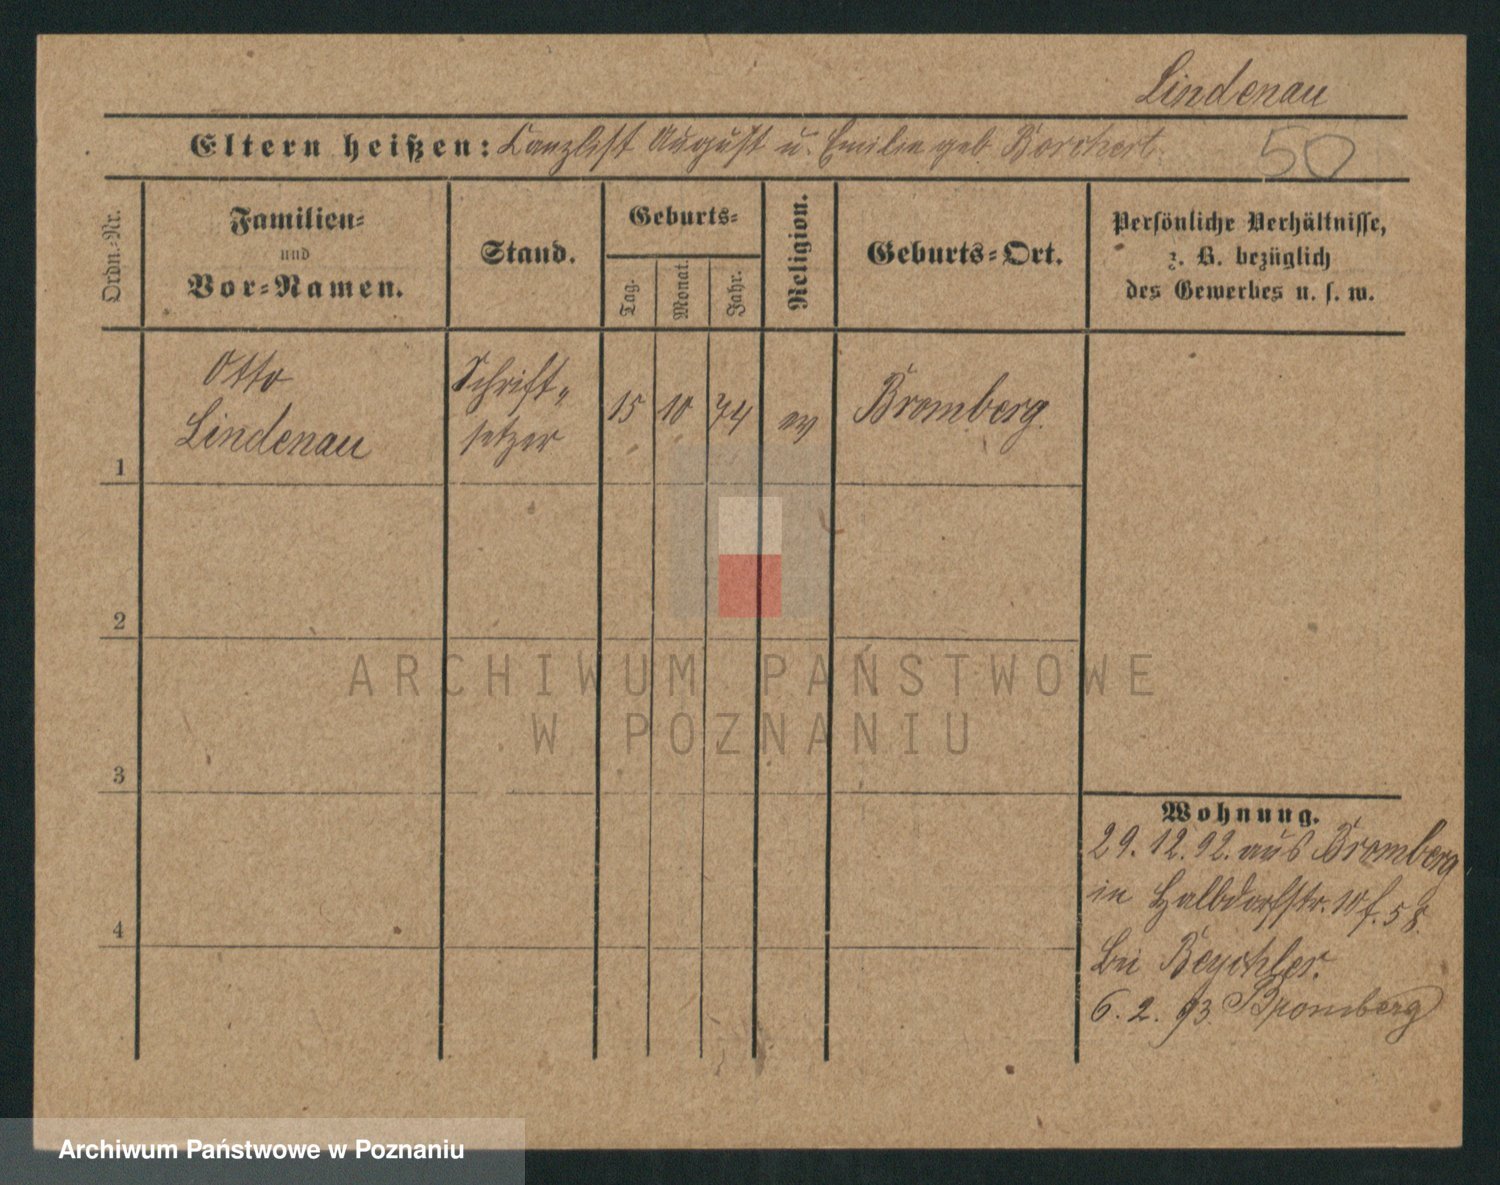 Lindenau
Eltern heißen: Canzlist August u. Emilie geb Borchert
50
Ordn.-Nr.
Familien-
und
Vor-Namen.
Stand.
Geburts-
Tag.
Monat.
Jahr.
Religion.
Geburts-Ort.
Persönliche Verhältnisse,
z. B. bezüglich
des Gewerbes u. s. w.
1
Otto
Lindenau
Schrift-
setzer
15
10
74
ev
Bromberg.
2
3
4
Wohnung.
29. 12. 92. aus Bromberg
in Halbdorfstr. 10
bei
6. 2. 93. Bromberg
ARCHIWUM PAŃSTWOWE
W POZNANIU
Archiwum Państwowe w Poznaniu